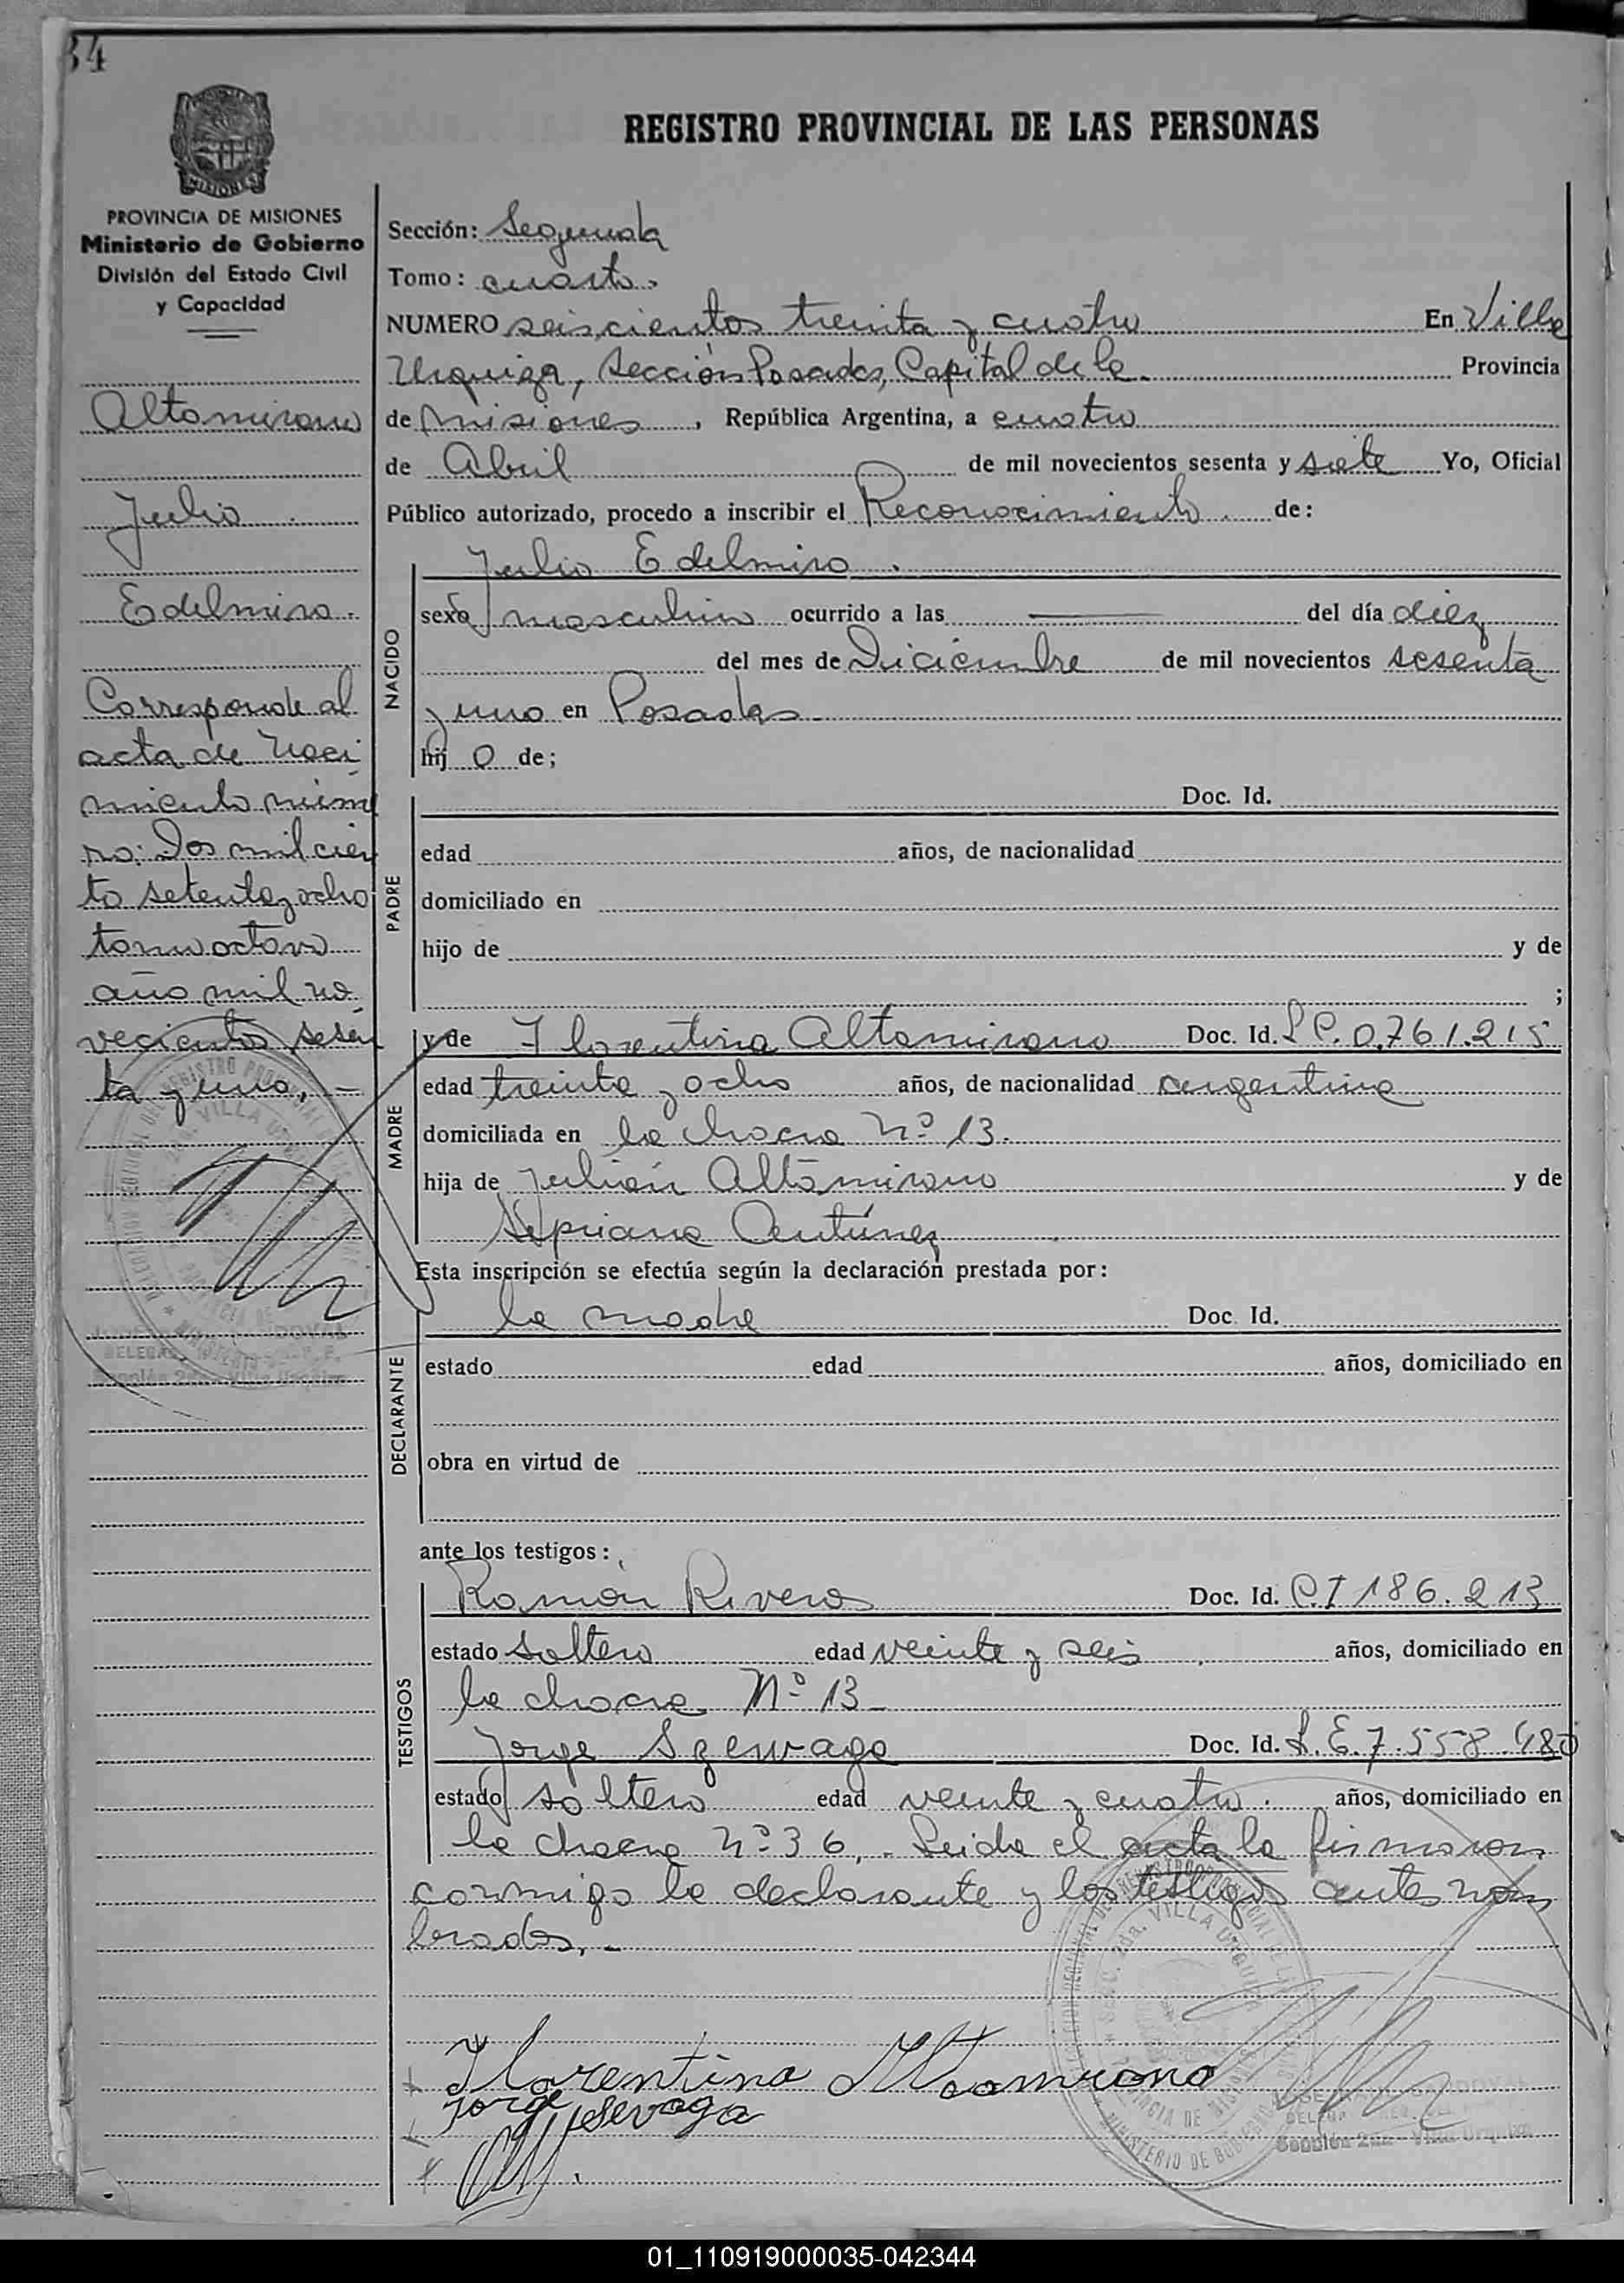 34
REGISTRO PROVINCIAL DE LAS PERSONAS
MISIONES
PROVINCIA DE MISIONES
Ministerio de Gobierno
División del Estado Civil
y Capacidad
Altamirano
Julio
Edelmiro.
Corresponde al
acta de Naci
miento núme
ro: Dos mil cien
to setenta y ocho
tomo octavo
año mil no
vecientos sesen
ta y uno, -
Sección: Segunda
Tomo: cuarto.
NUMERO seiscientos treinta y cuatro En Villa
Urquiza, Sección Posadas, Capital de la Provincia
de Misiones, República Argentina, a cuatro
de Abril de mil novecientos sesenta y siete Yo, Oficial
Público autorizado, procedo a inscribir el Reconocimiento. de:
NACIDO
Julio Edelmiro.
sexo masculino ocurrido a las — del día diez
del mes de Diciembre de mil novecientos sesenta
y uno en Posadas
hij o de;
PADRE
Doc. Id.
edad años, de nacionalidad
domiciliado en
hijo de y de
;
MADRE
y de Florentina Altamirano Doc. Id. L.C. 0.761.215
edad treinta y ocho años, de nacionalidad argentina
domiciliada en la chacra Nº 13.
hija de Julián Altamirano y de
Sipriana Antúnez
Esta inscripción se efectúa según la declaración prestada por:
DECLARANTE
la madre Doc. Id.
estado edad años, domiciliado en
obra en virtud de
ante los testigos:
TESTIGOS
Ramón Rivero Doc. Id. C.I 186.213
estado soltero edad veinte y seis años, domiciliado en
la chacra Nº 13-
Jorge Doc. Id. L.E. 7.558.480
estado soltero edad veinte y cuatro. años, domiciliado en
la chacra Nº 36,. Leida el acta la firmaron
conmigo la declarante y los testigos antes nom
brados, -
Florentina Altamirano
Jorge
Sección 2da - Villa Urquiza
01_110919000035-042344